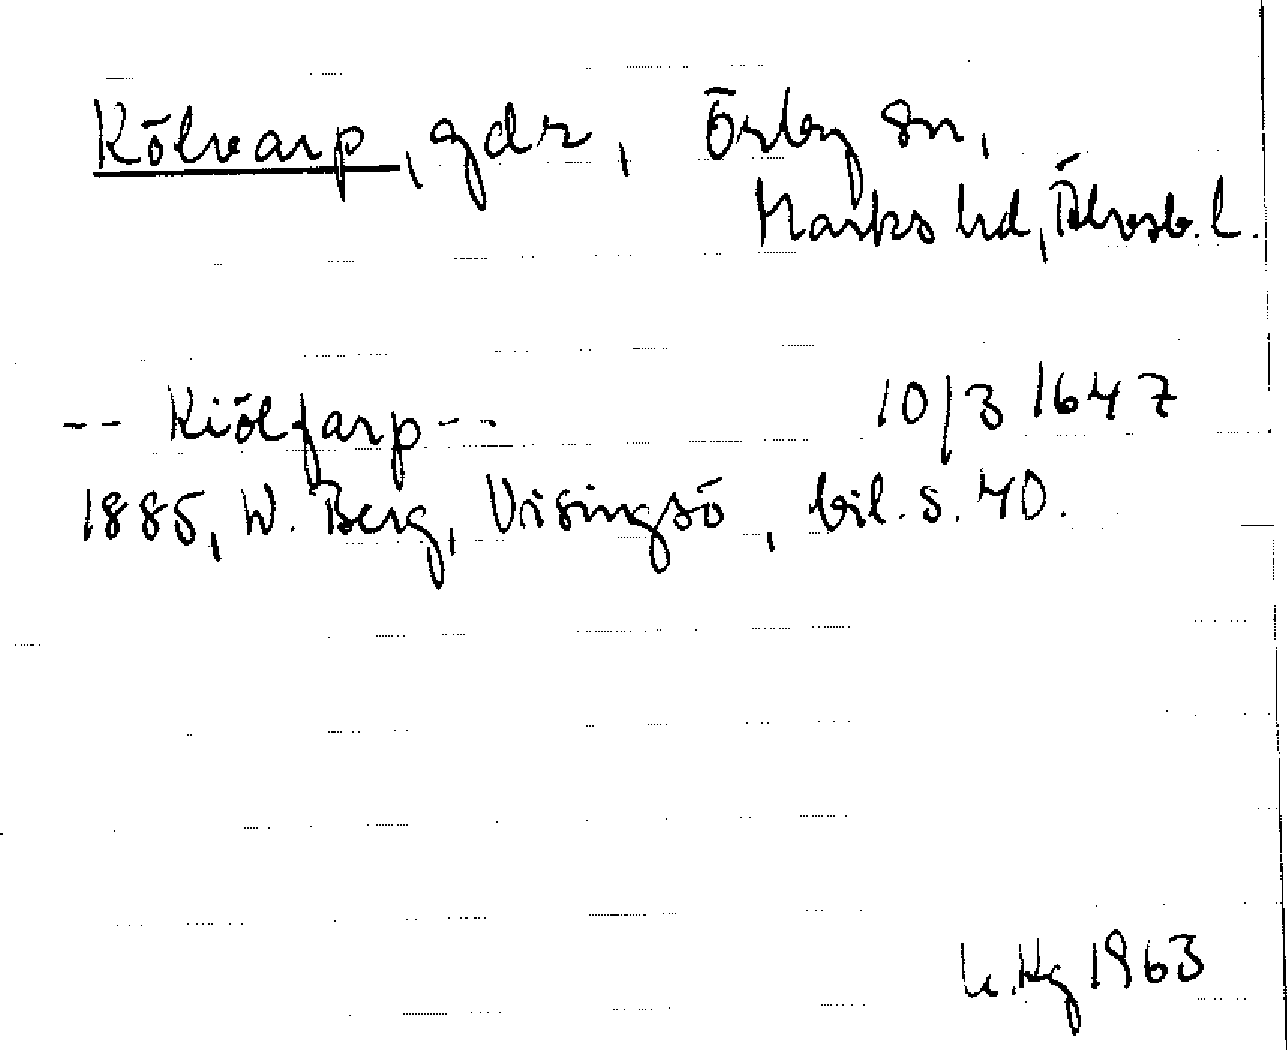 Kölvarp, gdr, Örby sn,
Marks hd, Älvsb. l.
-- Kiölfarp -- 10/3 1647
1885, W. Berg, Visingsö, bil. s. 40.
Hg 1963